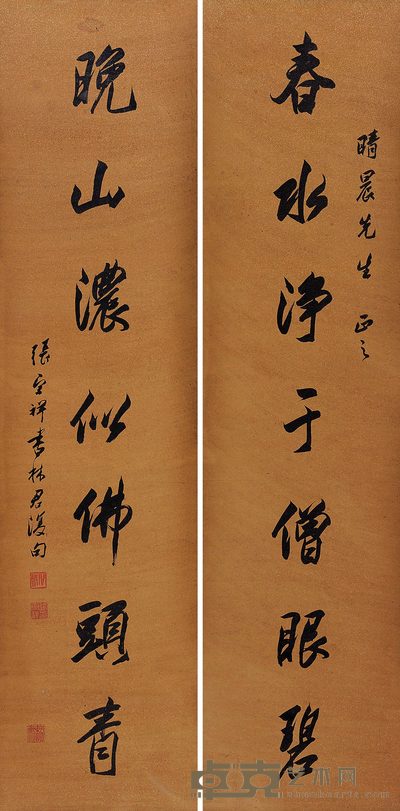 春水净于僧眼碧
晴晨先生 正之
晚山濃似佛頭青
張宗祥書林君復句
卓克艺术网